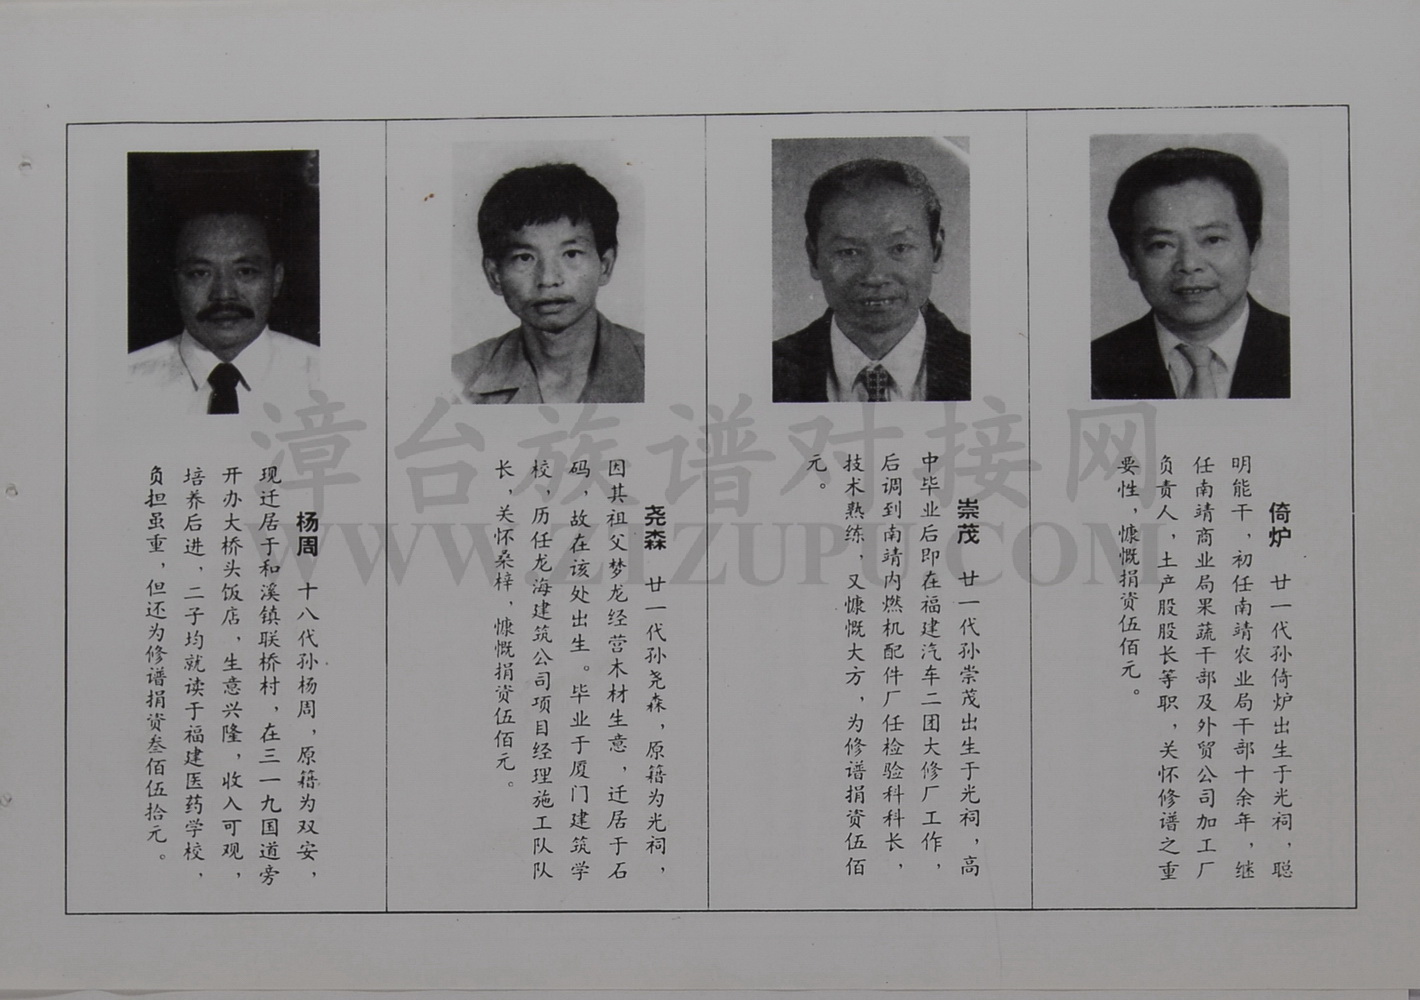 倚炉 廿一代孙倚炉出生于光祠，聪
明能干，初任南靖农业局干部十余年，继
任南靖商业局果蔬干部及外贸公司加工厂
负责人，土产股股长等职，关怀修谱之重
要性，慷慨捐资伍佰元。
崇茂 廿一代孙崇茂出生于光祠，高
中毕业后即在福建汽车二团大修厂工作，
后调到南靖内燃机配件厂任检验科科长，
技术熟练，又慷慨大方，为修谱捐资伍佰
元。
尧森 廿一代孙尧森，原籍为光祠，
因其祖父梦龙经营木材生意，迁居于石
码，故在该处出生。毕业于厦门建筑学
校，历任龙海建筑公司项目经理施工队队
长，关怀桑梓，慷慨捐资伍佰元。
杨周 十八代孙杨周，原籍为双安，
现迁居于和溪镇联桥村，在三一九国道旁
开办大桥头饭店，生意兴隆，收入可观，
培养后进，二子均就读于福建医药学校，
负担虽重，但还为修谱捐资叁佰伍拾元。
漳台族谱对接网
WWW.ZIZUPU.COM